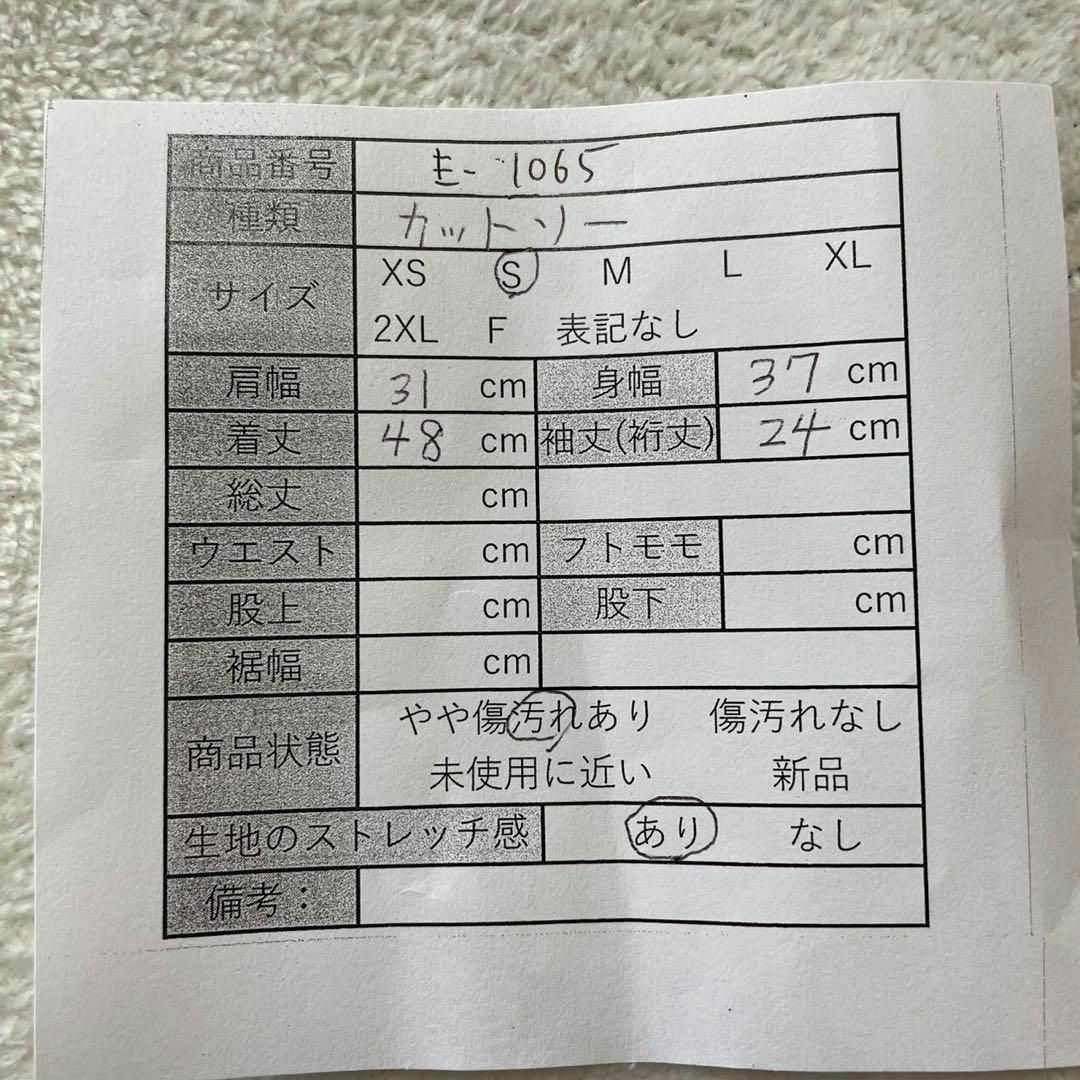 商品番号 モ-1065
種類 カットソー
サイズ XS S M L XL
2XL F 表記なし
肩幅 31 cm 身幅 37 cm
着丈 48 cm 袖丈(裄丈) 24 cm
総丈 cm
ウエスト cm フトモモ cm
股上 cm 股下 cm
裾幅 cm
商品状態 やや傷汚れあり 傷汚れなし
未使用に近い 新品
生地のストレッチ感 あり なし
備考：